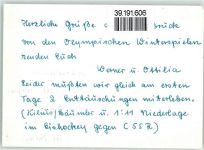 39.191.606
Herzliche Grüße brücke
von den Olympischen Winterspielen
senden Euch
Werner u. Ottilia
Leider mußten wir gleich am ersten
Tage 2 Enttäuschungen miterleben.
u. 1:11 Niederlage
im Eishockey gegen CSSR)